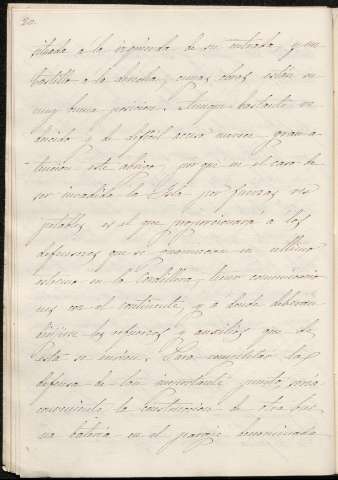 20.
situada a la izquierda de su entrada, y un
castillo a la derecha, cuyas obras estan en
muy buena posicion. Aunque bastante re
ducido y de dificil acceso merece gran a-
tencion este abrigo, porque en el caso de
ser invadida la Isla por fuerzas res
petables es el que proporcionará a los
defensores que se encuentren en ultimo
estremo en la Cordillera, tener comunicacio
nes con el continente, y a donde deberan
dirijirse los refuerzos y ausilios que de
esta se envien. Para completar la
defensa de tan importante punto, seria
conveniente la construccion de otra bue
na bateria en el parage denominado